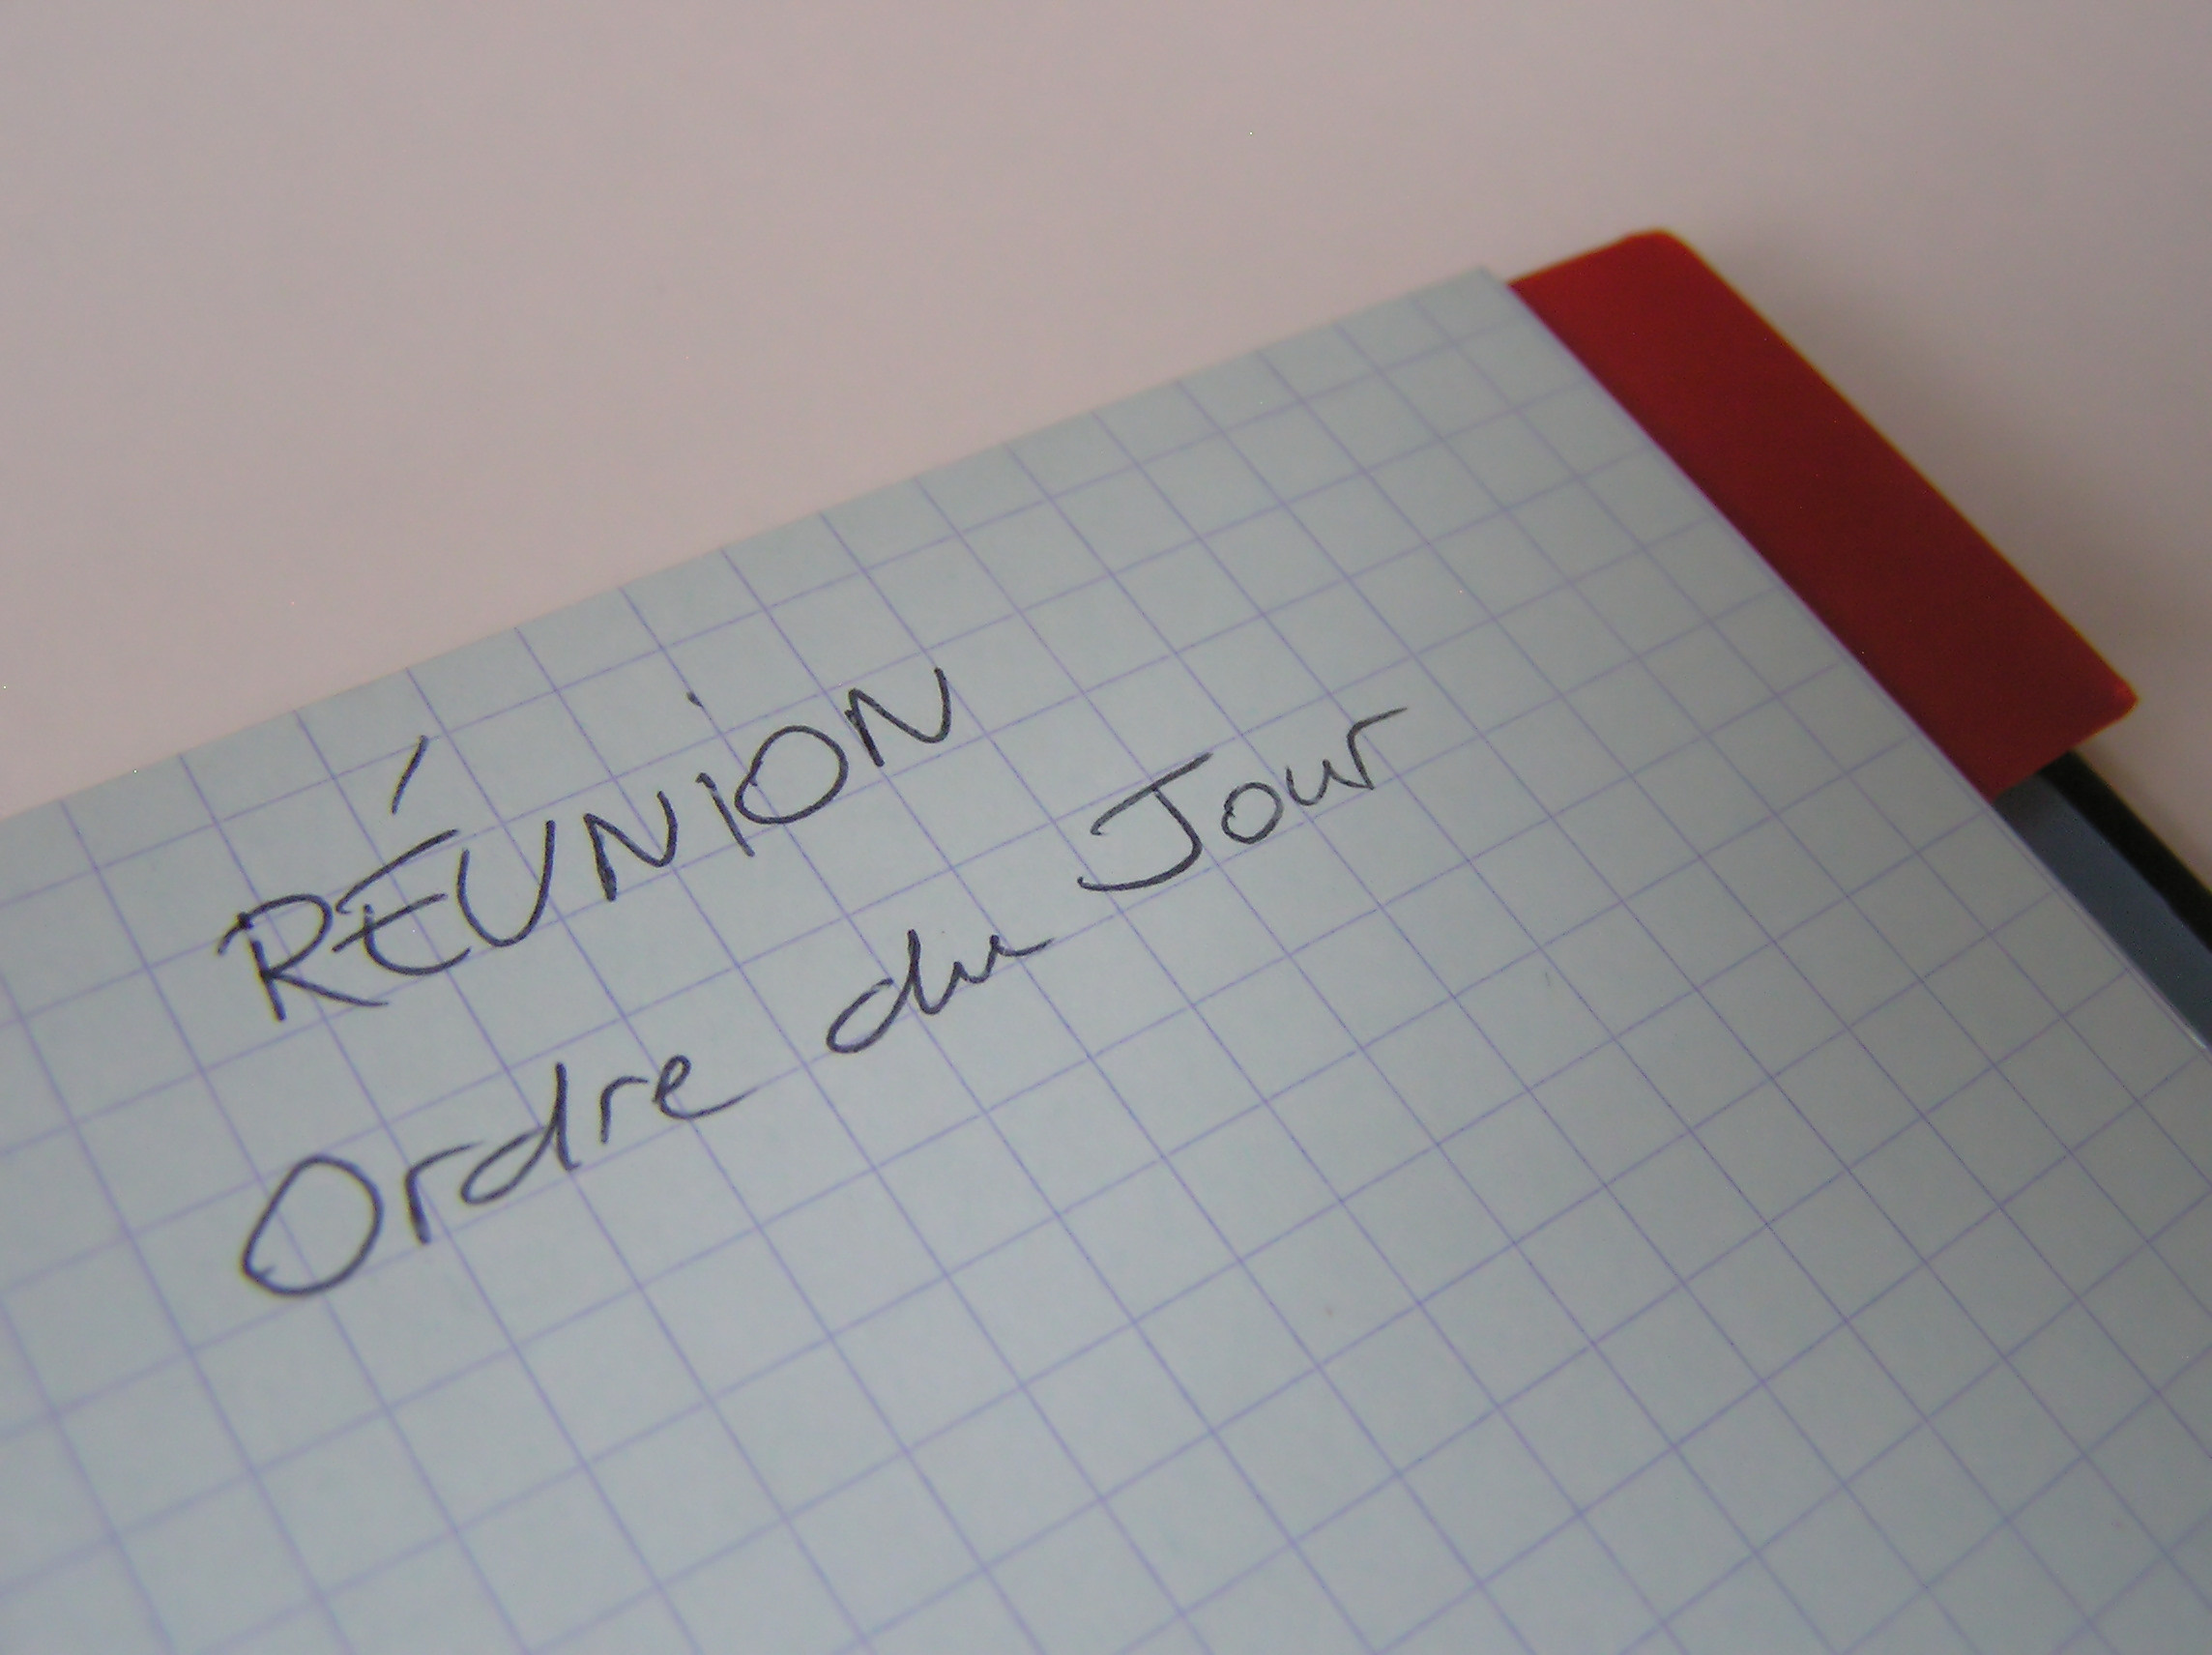 RÉUNiON
Ordre du Jour